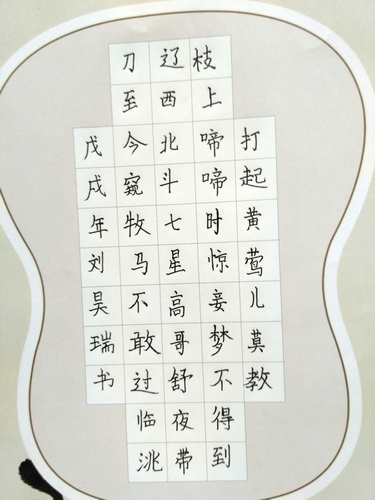 打起黄莺儿莫教
枝上啼啼时惊妾梦不得到
辽西北斗七星高哥舒夜带
刀至今窥牧马不敢过临洮
戊戌年刘昊瑞书